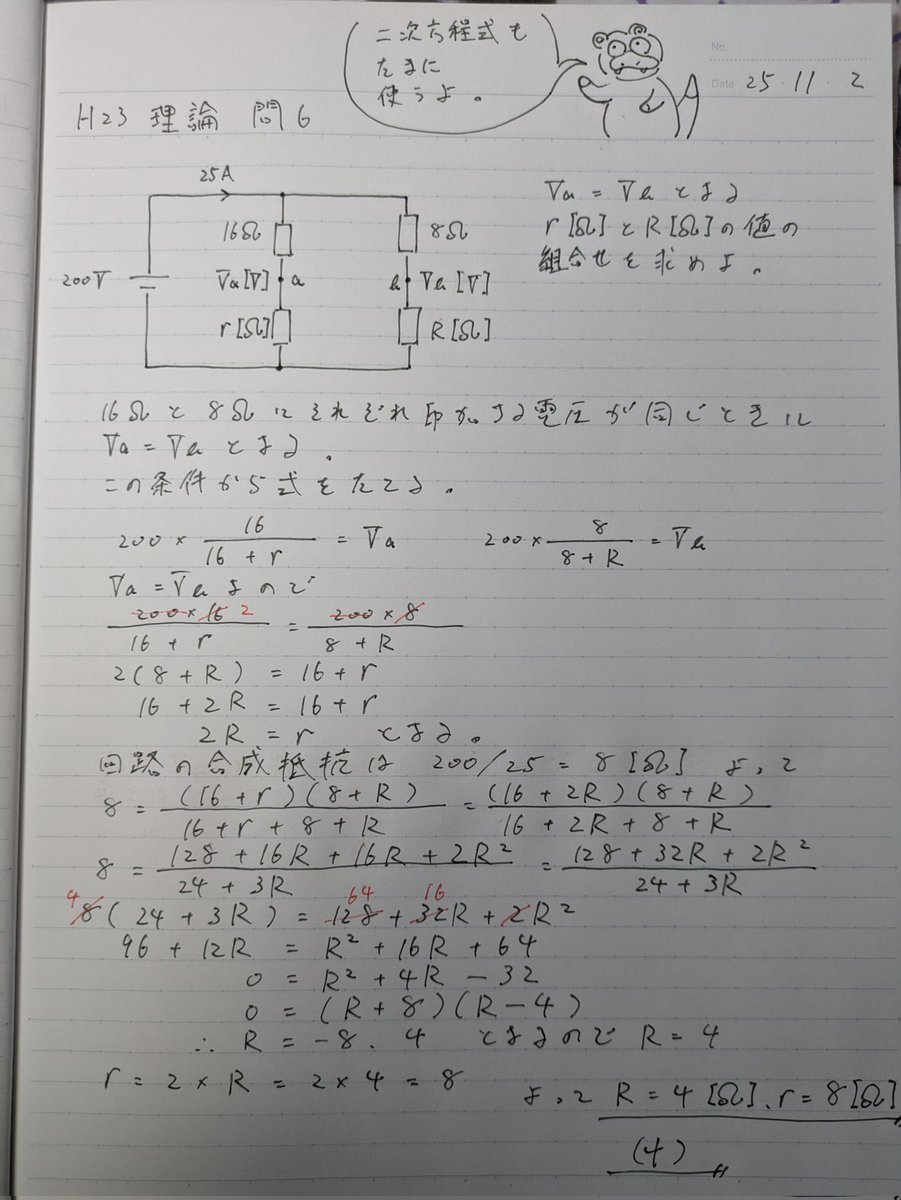 二次方程式も
たまに
使うよ。
No.
Date 25・11・2
H23 理論 問6
25A
16Ω
8Ω
200V
Va[V] a
b Vb[V]
r[Ω]
R[Ω]
Va = Vb となる
r[Ω]とR[Ω]の値の
組合せを求めよ。
16Ωと8Ωにそれぞれ印加する電圧が同じときに
Va = Vb となる。
この条件から式をたてる。
200 × 16/(16 + r) = Va
200 × 8/(8 + R) = Vb
Va = Vb なので
(200 × 16 2)/(16 + r) = (200 × 8)/(8 + R)
2(8 + R) = 16 + r
16 + 2R = 16 + r
2R = r となる。
回路の合成抵抗は 200/25 = 8[Ω] よって
8 = (16 + r)(8 + R)/(16 + r + 8 + R) = (16 + 2R)(8 + R)/(16 + 2R + 8 + R)
8 = (128 + 16R + 16R + 2R²)/(24 + 3R) = (128 + 32R + 2R²)/(24 + 3R)
4 64 16
8(24 + 3R) = 128 + 32R + 2R²
96 + 12R = R² + 16R + 64
0 = R² + 4R − 32
0 = (R + 8)(R − 4)
∴ R = −8、4 となるので R = 4
r = 2 × R = 2 × 4 = 8
よって R = 4[Ω]、r = 8[Ω]
(4)